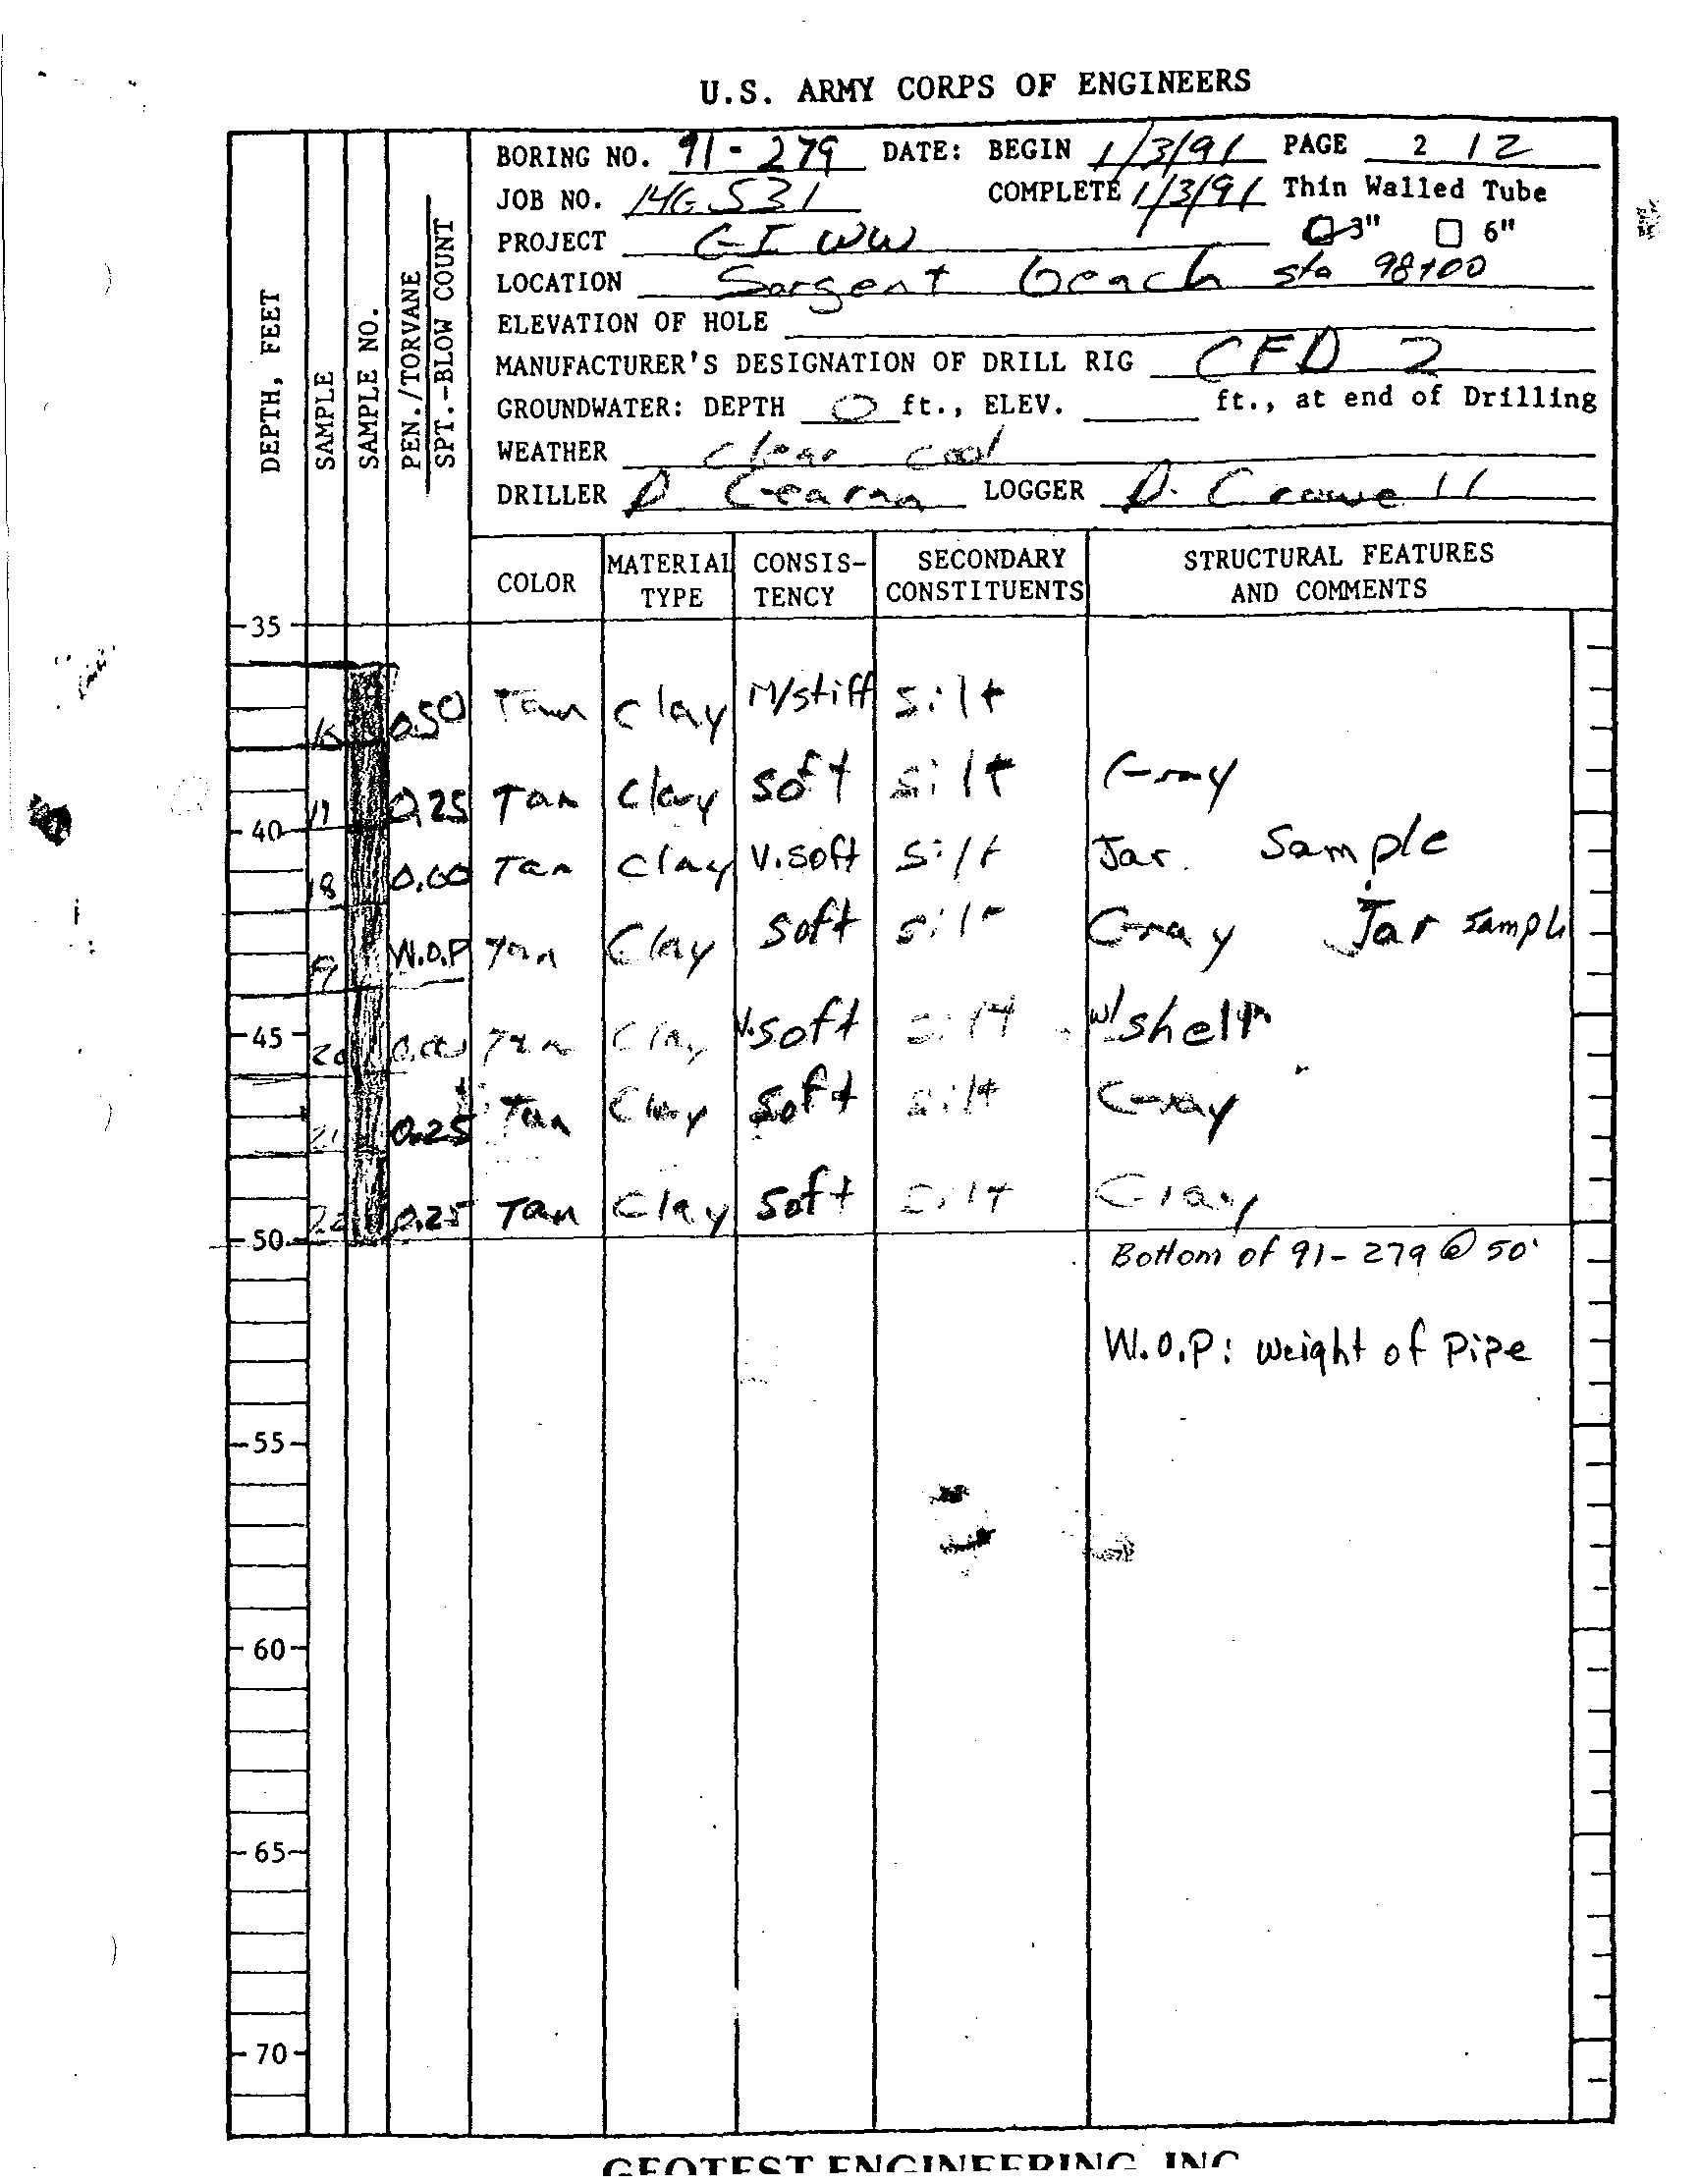 U.S. ARMY CORPS OF ENGINEERS
BORING NO. 91-279 DATE: BEGIN 1/3/91 PAGE 2 / 2
JOB NO. 14G531 COMPLETE 1/3/91 Thin Walled Tube
PROJECT GIWW 3" 6"
LOCATION Sargent beach sta 98+00
ELEVATION OF HOLE
MANUFACTURER'S DESIGNATION OF DRILL RIG CFD 2
GROUNDWATER: DEPTH 0 ft., ELEV. ft., at end of Drilling
WEATHER clear cool
DRILLER D LOGGER D. Crowell
DEPTH, FEET
SAMPLE
SAMPLE NO.
PEN./TORVANE
SPT.-BLOW COUNT
COLOR MATERIAL TYPE CONSIS-TENCY SECONDARY CONSTITUENTS STRUCTURAL FEATURES AND COMMENTS
35
16 0.50 Tan Clay M/stiff silt
17 0.25 Tan Clay soft silt Gray
40
18 0.00 Tan Clay V.soft silt Jar Sample
19 W.O.P Tan Clay soft silt Gray Jar sample
45
20 0.00 Tan Clay V.soft silt w/shell
21 0.25 Tan Clay soft silt Gray
22 0.25 Tan Clay soft silt Gray
50
Bottom of 91-279 @ 50'
W.O.P: weight of Pipe
55
60
65
70
GEOTEST ENGINEERING, INC